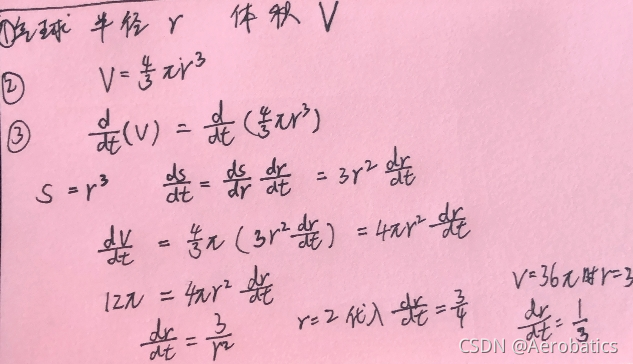 ①气球 半径 r 体积 V
② V = 4/3 πr³
③ d/dt (V) = d/dt (4/3 πr³)
S = r³ ds/dt = ds/dr dr/dt = 3r² dr/dt
dV/dt = 4/3 π (3r² dr/dt) = 4πr² dr/dt
12π = 4πr² dr/dt
dr/dt = 3/r² r=2 代入 dr/dt = 3/4
V=36π时r=3
dr/dt = 1/3
CSDN @Aerobatics